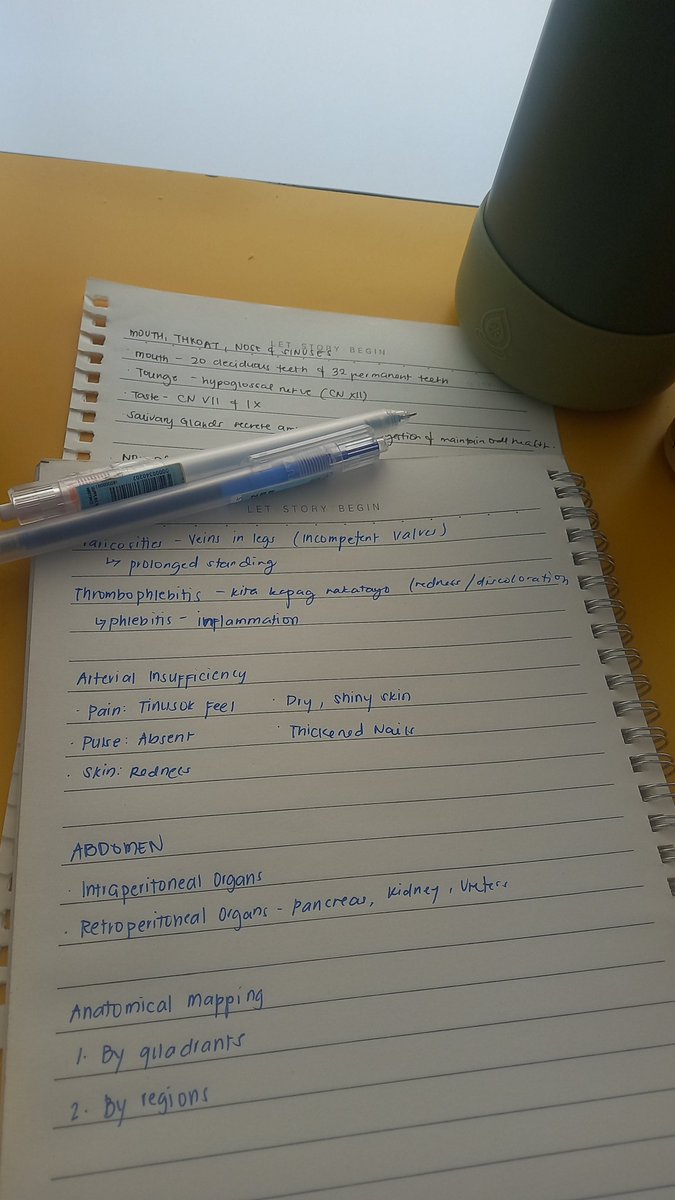 LET STORY BEGIN
MOUTH, THROAT, NOSE & SINUSES
· mouth - 20 deciduous teeth & 32 permanent teeth
· Tounge - hypoglossal nerve (CN XII)
· Taste - CN VII & IX
Salivary Glands secrete & maintain oral health.
LET STORY BEGIN
Varicosities - Veins in legs (incompetent valves)
↳ prolonged standing
Thrombophlebitis - kita kapag nakatayo (redness/discoloration
↳ phlebitis - inflammation
Arterial Insufficiency
· Pain: Tinusok Feel · Dry, shiny skin
· Pulse: Absent · Thickened Nails
· Skin: Redness
ABDOMEN
· Intraperitoneal Organs
· Retroperitoneal Organs - Pancreas, Kidney, Ureters
Anatomical mapping
1. By quadrants
2. By regions